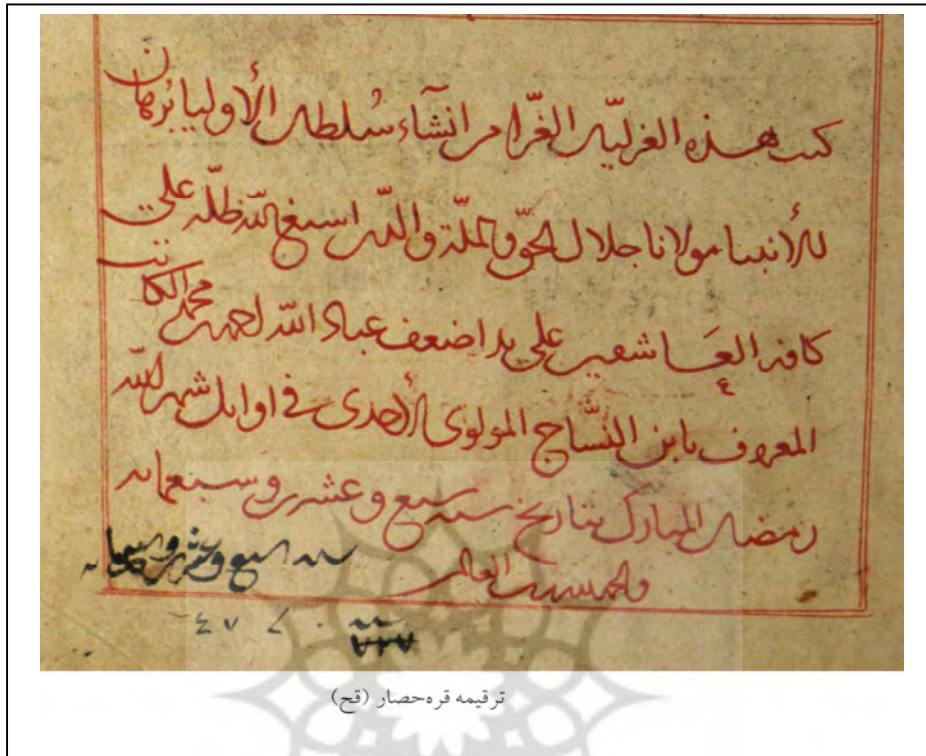 كتب هذه الغزليات الغرّا من انشآء سُلطان الأوليا بُرهان
الأنبيا مولانا جلال الحقّ والملّة والدين اسبغ الله ظلّه على
كافه العَاشقين على يد اضعف عباد الله احمد بن محمد الكاتب
المعروف بابن النسَّاج المولوى الأحدى في اوايل شهر الله
رمضان المبارك بتاريخ سنه سبع وعشرين وسبعمايه
والحمد لله رب العالمين
سنه سبع وعشرين وسبعمايه
٧٢٧
ترقیمه قره‌حصار (قح)